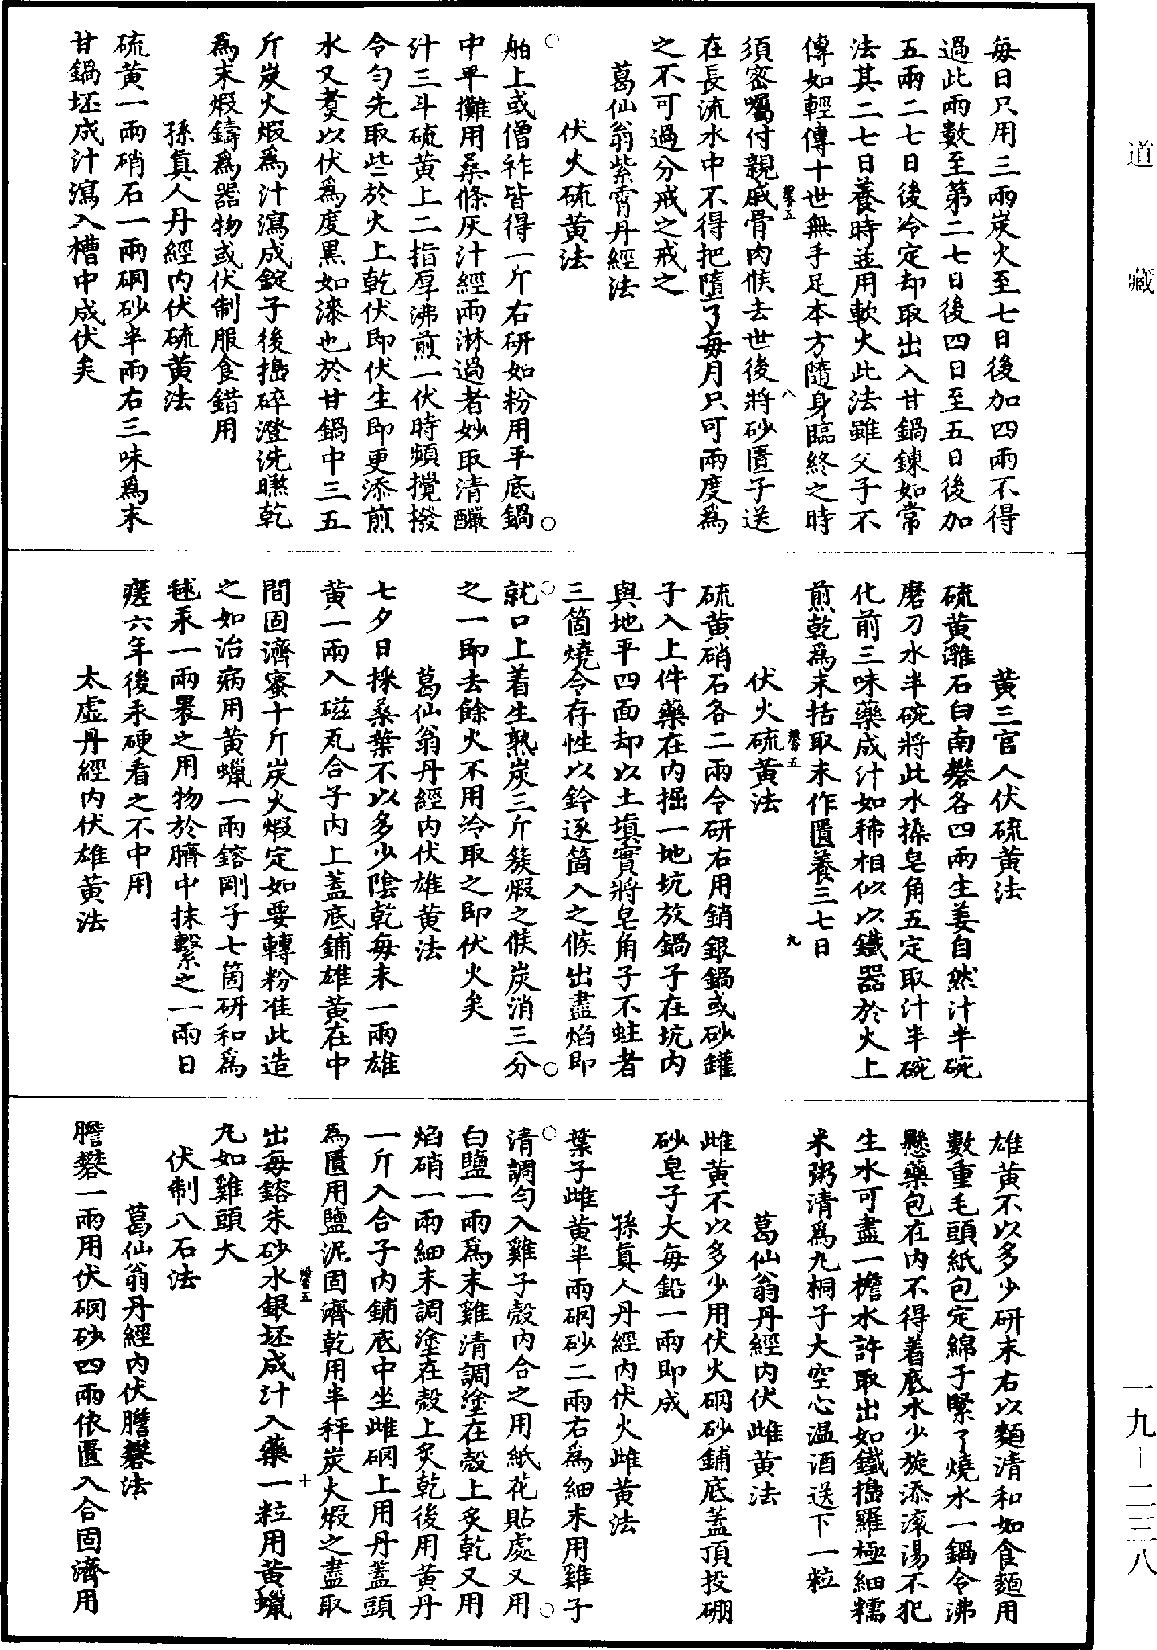 道藏
每日只用三兩炭火至七日後加四兩不得
過此兩數至第二七日後四日至五日後加
五兩二七日後冷定却取出入甘鍋鍊如常
法其二七日養時並用軟火此法雖父子不
傳如輕傳十世無手足本方隨身臨終之時
須密囑付親戚骨肉候去世後將砂匱子送
在長流水中不得把墮了每月只可兩度爲
之不可過分戒之戒之
葛仙翁紫霄丹經法
伏火硫黃法
舶上或僧祚皆得一斤右研如粉用平底鍋
中平攤用桑條灰汁經兩淋過者妙取清釅
汁三斗硫黃上二指厚沸煎一伏時頻攪撥
令勻先取些於火上乾伏即伏生即更添煎
水又煑以伏爲度黑如漆也於甘鍋中三五
斤炭火煅爲汁瀉成錠子後搗碎澄洗㬠乾
爲末煅鑄爲器物或伏制服食錯用
孫眞人丹經內伏硫黃法
硫黃一兩硝石一兩硇砂半兩右三味爲末
甘鍋坯成汁瀉入槽中成伏矣
黃三官人伏硫黃法
硫黃灉石白南礬各四兩生姜自然汁半碗
磨刀水半碗將此水搡皂角五定取汁半碗
化前三味藥成汁如稀相似以鐵器於火上
煎乾爲末括取末作匱養三七日
伏火硫黃法
硫黃硝石各二兩令研右用銷銀鍋或砂罐
子入上件藥在內掘一地坑放鍋子在坑內
與地平四面却以土填實將皂角子不蛀者
三箇燒令存性以鈐逐箇入之候出盡焰即
就口上着生熟炭三斤簇煅之候炭消三分
之一即去餘火不用冷取之即伏火矣
葛仙翁丹經內伏雄黃法
七夕日採桑葉不以多少陰乾每末一兩雄
黃一兩入磁瓦合子內上蓋底鋪雄黃在中
間固濟蜜十斤炭火煅定如要轉粉准此造
之如治病用黃蠟一兩鎔剛子七箇研和爲
毬汞一兩褁之用物於臍中抹繫之一兩日
瘥六年後汞硬看之不中用
太虛丹經內伏雄黃法
雄黃不以多少研末右以麵清和如食麵用
數重毛頭紙包定綿子緊了燒水一鍋令沸
懸藥包在內不得着底水少旋添滚湯不犯
生水可盡一檐水許取出如鐵搗羅極細糯
米粥清爲丸桐子大空心温酒送下一粒
葛仙翁丹經內伏雌黃法
雌黃不以多少用伏火硇砂鋪底蓋頂投硼
砂皂子大每鉛一兩即成
孫眞人丹經內伏火雌黃法
葉子雌黃半兩硇砂二兩右爲細末用雞子
清調勻入雞子殼內合之用紙花貼處又用
白鹽一兩爲末雞清調塗在殼上炙乾又用
焰硝一兩細末調塗在殼上炙乾後用黃丹
一斤入合子內鋪底中坐雌硇上用丹蓋頭
爲匱用鹽泥固濟乾用半秤炭火煅之盡取
出每鎔朱砂水銀坯成汁入藥一粒用黃蠟
丸如雞頭大
伏制八石法
葛仙翁丹經內伏膽礬法
膽礬一兩用伏硇砂四兩依匱入合固濟用
八
九
十
一九－二三八